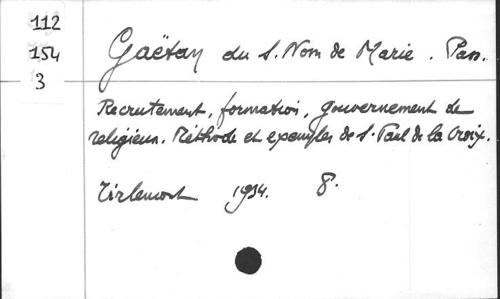 112
154
3
Gaëtan du S. Nom de Marie. Pass.
Recrutement, formation, gouvernement de
religieux. Méthode et exemples de S. Paul de la Croix.
Tirlemont 1934. 8°.